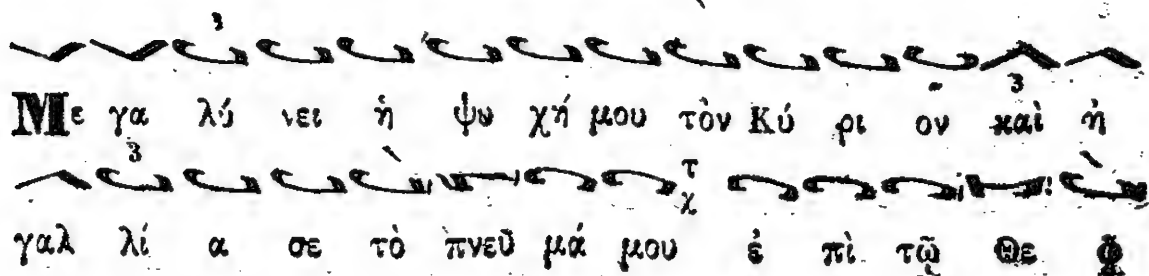 Με γα λύ νει ἡ ψυ χή μου τὸν Κύ ρι ον καὶ ἠ
γαλ λί α σε τὸ πνεῦ μά μου ἐ πὶ τῷ Θε ῷ